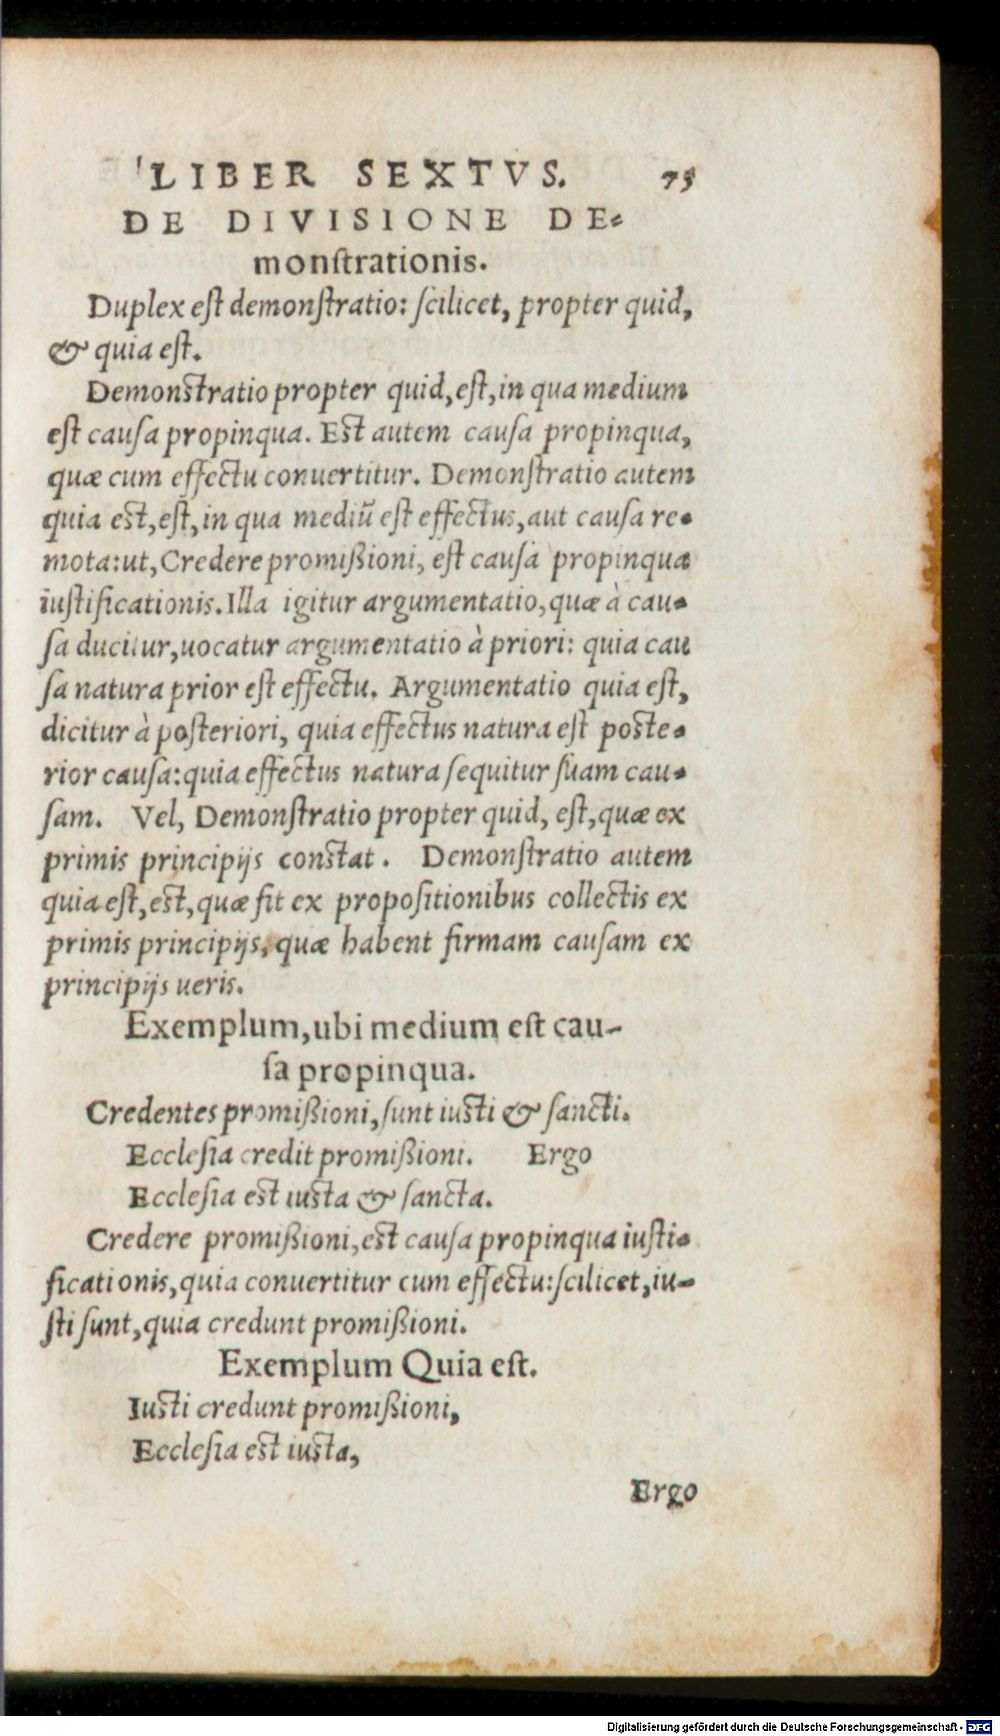 LIBER SEXTVS. 75
DE DIVISIONE DE-
monstrationis.
Duplex est demonstratio: scilicet, propter quid,
& quia est.
Demonstratio propter quid, est, in qua medium
est causa propinqua. Est autem causa propinqua,
quæ cum effectu conuertitur. Demonstratio autem
quia est, est, in qua mediũ est effectus, aut causa re-
mota: ut, Credere promißioni, est causa propinqua
iustificationis. Illa igitur argumentatio, quæ à cau-
sa ducitur, uocatur argumentatio à priori: quia cau
sa natura prior est effectu. Argumentatio quia est,
dicitur à posteriori, quia effectus natura est poste-
rior causa: quia effectus natura sequitur suam cau-
sam. Vel, Demonstratio propter quid, est, quæ ex
primis principijs constat. Demonstratio autem
quia est, est, quæ fit ex propositionibus collectis ex
primis principijs, quæ habent firmam causam ex
principijs ueris.
Exemplum, ubi medium est cau-
sa propinqua.
Credentes promißioni, sunt iusti & sancti.
Ecclesia credit promißioni. Ergo
Ecclesia est iusta & sancta.
Credere promißioni, est causa propinqua iusti-
ficationis, quia conuertitur cum effectu: scilicet, iu-
sti sunt, quia credunt promißioni.
Exemplum Quia est.
Iusti credunt promißioni,
Ecclesia est iusta,
Ergo
Digitalisierung gefördert durch die Deutsche Forschungsgemeinschaft - DFG